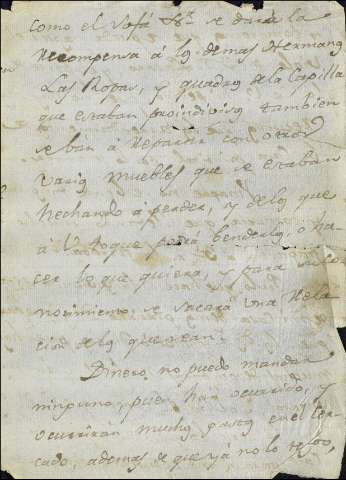 como el Sofá &c. se dará la
Recompensa á los demas Hermanos
Las Ropas, y quadros de la Capilla
que estaban proindivisos tambien
se ban á Repartir con otros
varios muebles que se estaban
hechando á perder, y delo que
á V. toque podrá benderlo, o ha-
cer lo que quiera, y para su co-
nocimiento se sacará una Rela-
cion delos que sean.
Dinero no puedo mandar
ninguno, pues han ocurrido, y
ocurrirán muchos gastos en el Cer-
cado, ademas de que yá no lo tengo,